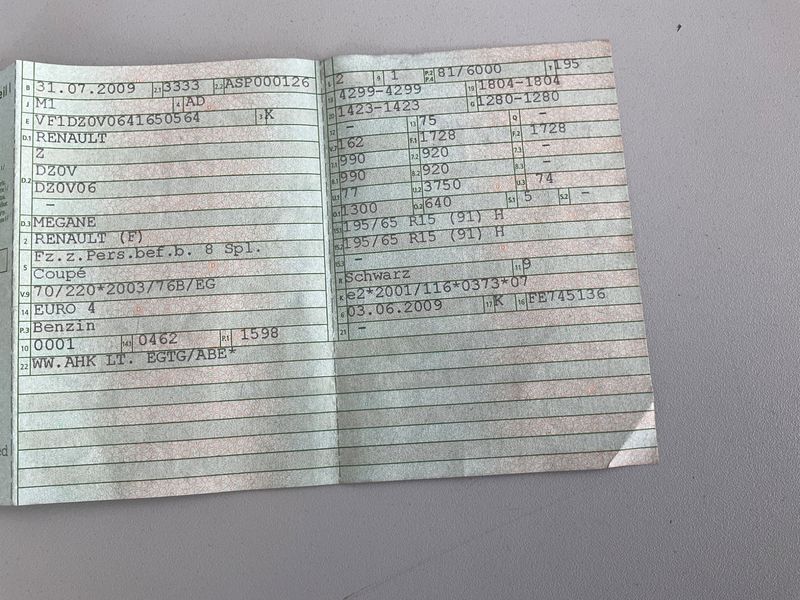 B 31.07.2009 2.1 3333 2.2 ASP000126
J M1 4 AD
E VF1DZ0V0641650564 3 K
D.1 RENAULT
Z
D.2 DZ0V
DZ0V06
-
D.3 MEGANE
2 RENAULT (F)
5 Fz.z.Pers.bef.b. 8 Spl.
Coupé
V.9 70/220*2003/76B/EG
14 EURO 4
P.3 Benzin
10 0001 14.1 0462 P.1 1598
22 WW.AHK LT. EGTG/ABE*
L 2 9 1 P.2 P.4 81/6000 T 195
18 4299-4299 19 1804-1804
20 1423-1423 G 1280-1280
12 - 13 75 Q -
V.7 162 F.1 1728 F.2 1728
7.1 990 7.2 920 7.3 -
8.1 990 8.2 920 8.3 -
U.1 77 U.2 3750 U.3 74
O.1 1300 O.2 640 S.1 5 S.2 -
15.1 195/65 R15 (91) H
15.2 195/65 R15 (91) H
15.3 -
R Schwarz 11 9
K e2*2001/116*0373*07
6 03.06.2009 17 K 16 FE745136
21 -